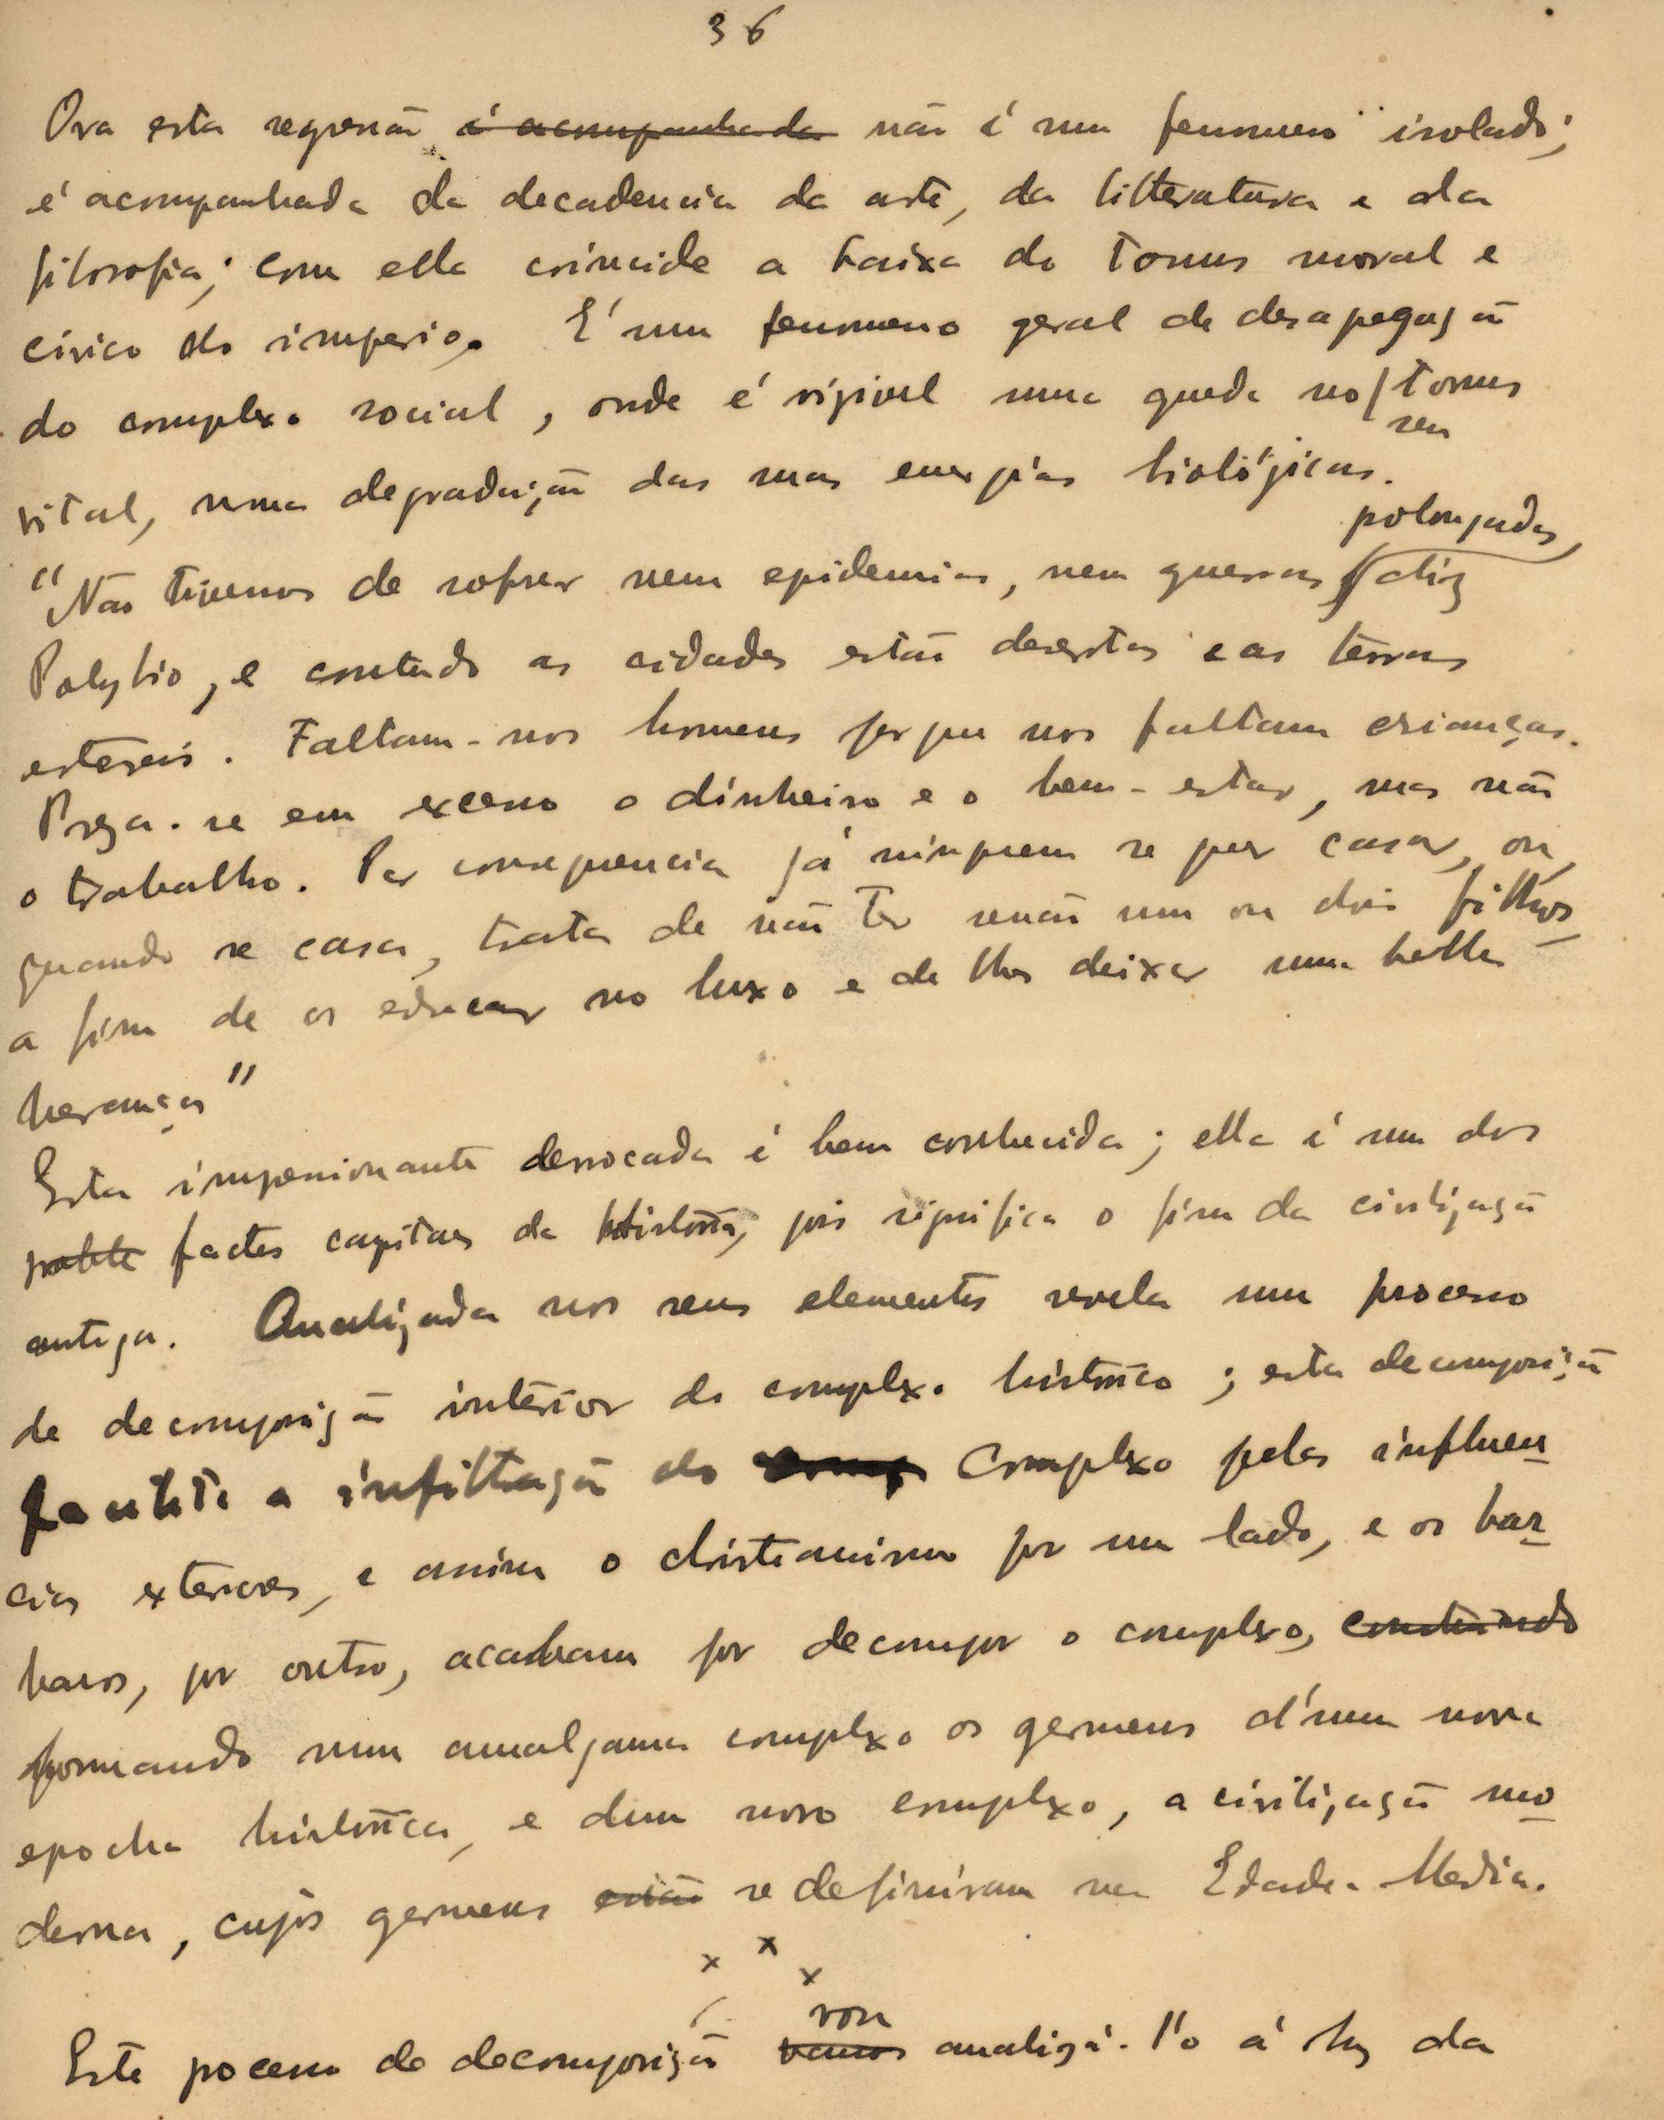 36
Ora esta regressão é acompanhada não é um fenomeno isolado;
é acompanhada da decadencia da arte, da litteratura e da
filosofia; com ella coincide a baixa do tonus moral e
civico do imperio. É um fenomeno geral de desagregação
do complexo social, onde é visivel uma queda no seu tonus
vital, uma degradação das suas energias biológicas.
"Não tivemos de sofrer nem epidemias, nem guerras prolongadas, diz
Polybio, e contudo as cidades estão desertas e as terras
estereis. Faltam-nos homens porque nos faltam crianças.
Preza-se em excesso o dinheiro e o bem-estar, mas não
o trabalho. Por consequencia já ninguem se quer casar, ou,
quando se casa, trata de não ter senão um ou dois filhos
a fim de os educar no luxo e de lhes deixar uma bella
herança"
Esta impressionante derrocada é bem conhecida; ella é um dos
factos capitaes da Historia, pois significa o fim da civilização
antiga. Analizada nos seus elementos revela um processo
de decomposição interior do complexo histórico; esta decomposição
permite a infiltração do comp complexo pelas influen-
cias exteriores, e assim o christianismo por um lado, e os bar-
baros, por outro, acabam por decompor o complexo, construindo
formando num amalgama complexo os germens d'uma nova
epocha histórica, e dum novo complexo, a civilização mo-
derna, cujos germens estão se definiram na Edade-Media.
x x x
Este processo de decomposição vamos vou analizá-l'o á luz da